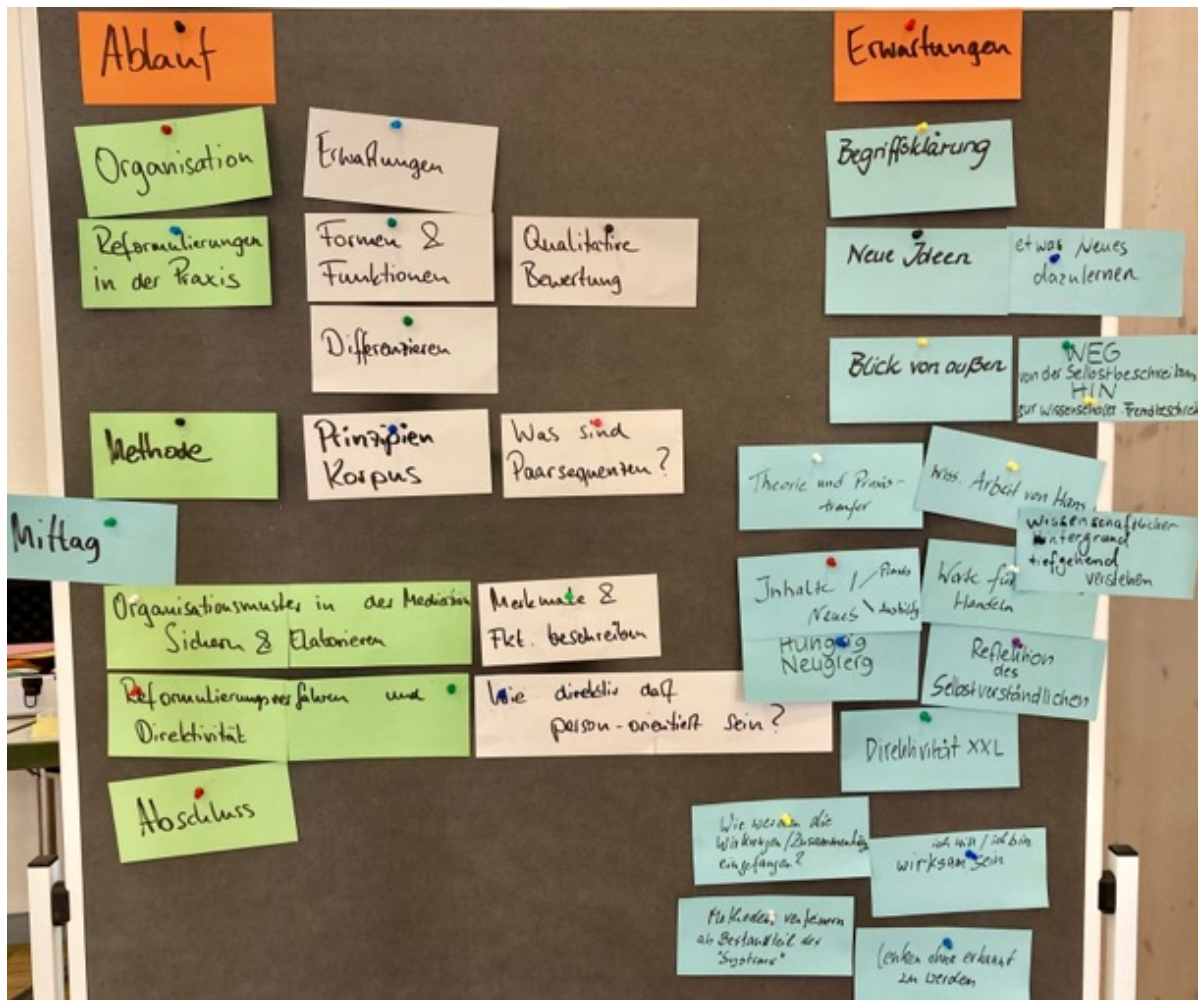 Ablauf
Organisation
Erwartungen
Reformulierungen
in der Praxis
Formen &
Funktionen
Qualitative
Bewertung
Differenzieren
Methode
Prinzipien
Korpus
Was sind
Paarsequenzen?
Mittag
Organisationsmuster in der Mediation
Sichern & Elaborieren
Merkmale &
Fkt. beschreiben
Reformulierungsverfahren und
Direktivität
Wie direktiv darf
person-orientiert sein?
Abschluss
Erwartungen
Begriffsklärung
Neue Ideen
etwas Neues
dazulernen
Blick von außen
WEG
von der Selbstbeschreibung
HIN
zur wissenschaftl. Fremdbeschreib
Theorie und Praxis-
transfer
wiss. Arbeit von Hans
wissenschaftlicher
Hintergrund
tiefgehend
verstehen
Inhalte / Praxis
Neues \ Ausbildg
Worte für
Handeln
Hungrig
Neugierg
Reflektion
des
Selbstverständlichen
Direktivität XXL
Wie werden die
Wirkungen/Zusammenhäng
eingefangen?
ich will / ich bin
wirksam sein
Methoden verfeinern
als Bestandteil des
"Systems"
Lenken ohne erkannt
zu werden